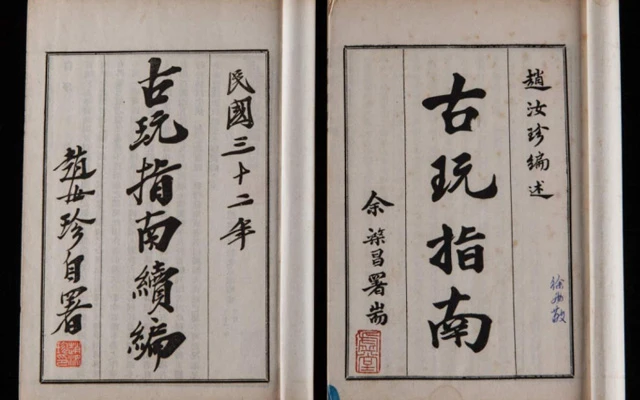 趙汝珍編述
古玩指南
余棨昌署耑
民國三十二年
古玩指南續編
趙汝珍自署